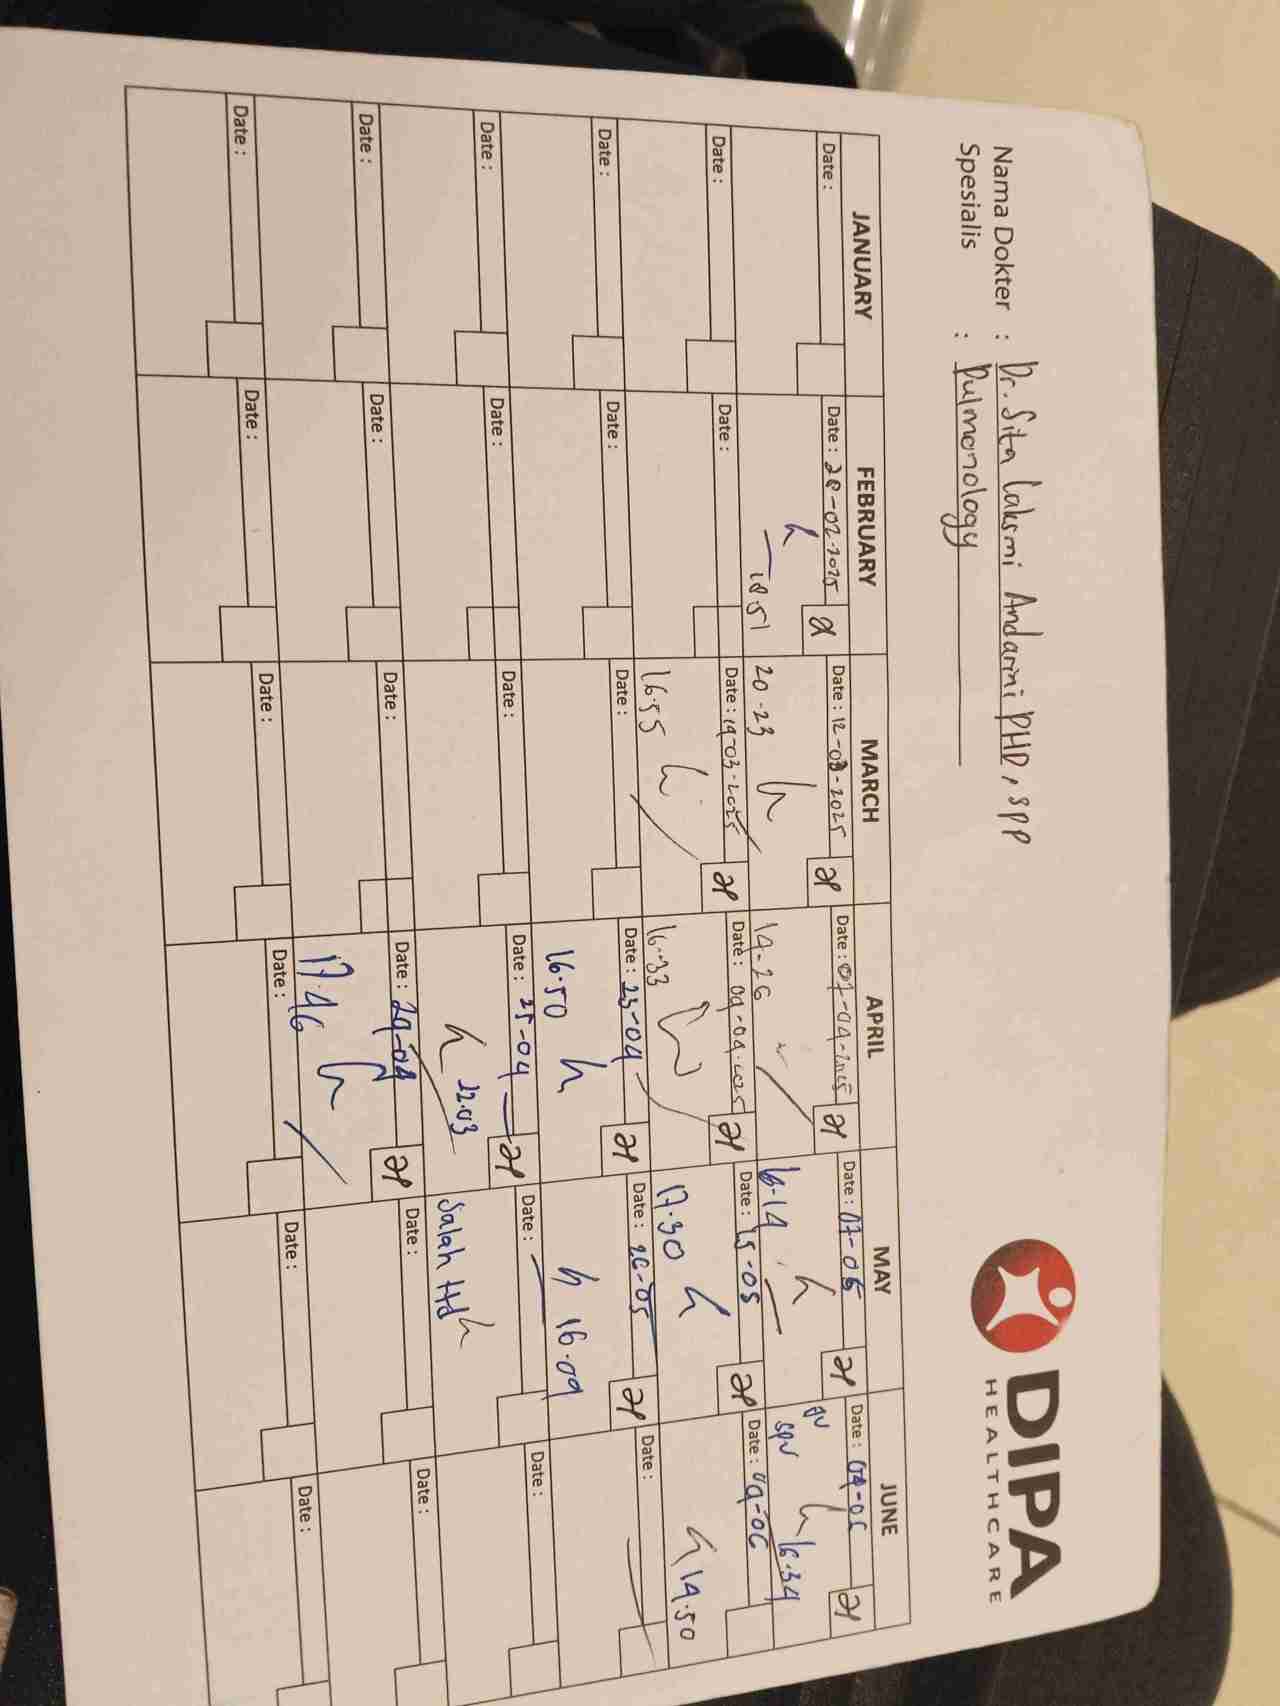 Nama Dokter : Dr. Sita Laksmi Andarini PHD, SPP
Spesialis : Pulmonology
DIPA
HEALTHCARE
JANUARY FEBRUARY MARCH APRIL MAY JUNE
Date : Date : 28-02-2025 Date : 12-03-2025 Date : 07-04-2025 Date : 07-05 Date : 04-06
18.51 20.23 14.26 16.14 spv 16.34
Date : Date : Date : 19-03-2025 Date : 09-04-2025 Date : 15-05 Date : 09-06
16.55 16.33 17.30 14.50
Date : Date : Date : Date : 23-04 Date : 26-05 Date :
16.50 16.09
Date : Date : Date : Date : 25-04 Date : Date :
22.03 Salah ttd
Date : Date : Date : Date : 29-04 Date : Date :
17.46
Date : Date : Date : Date : Date : Date :